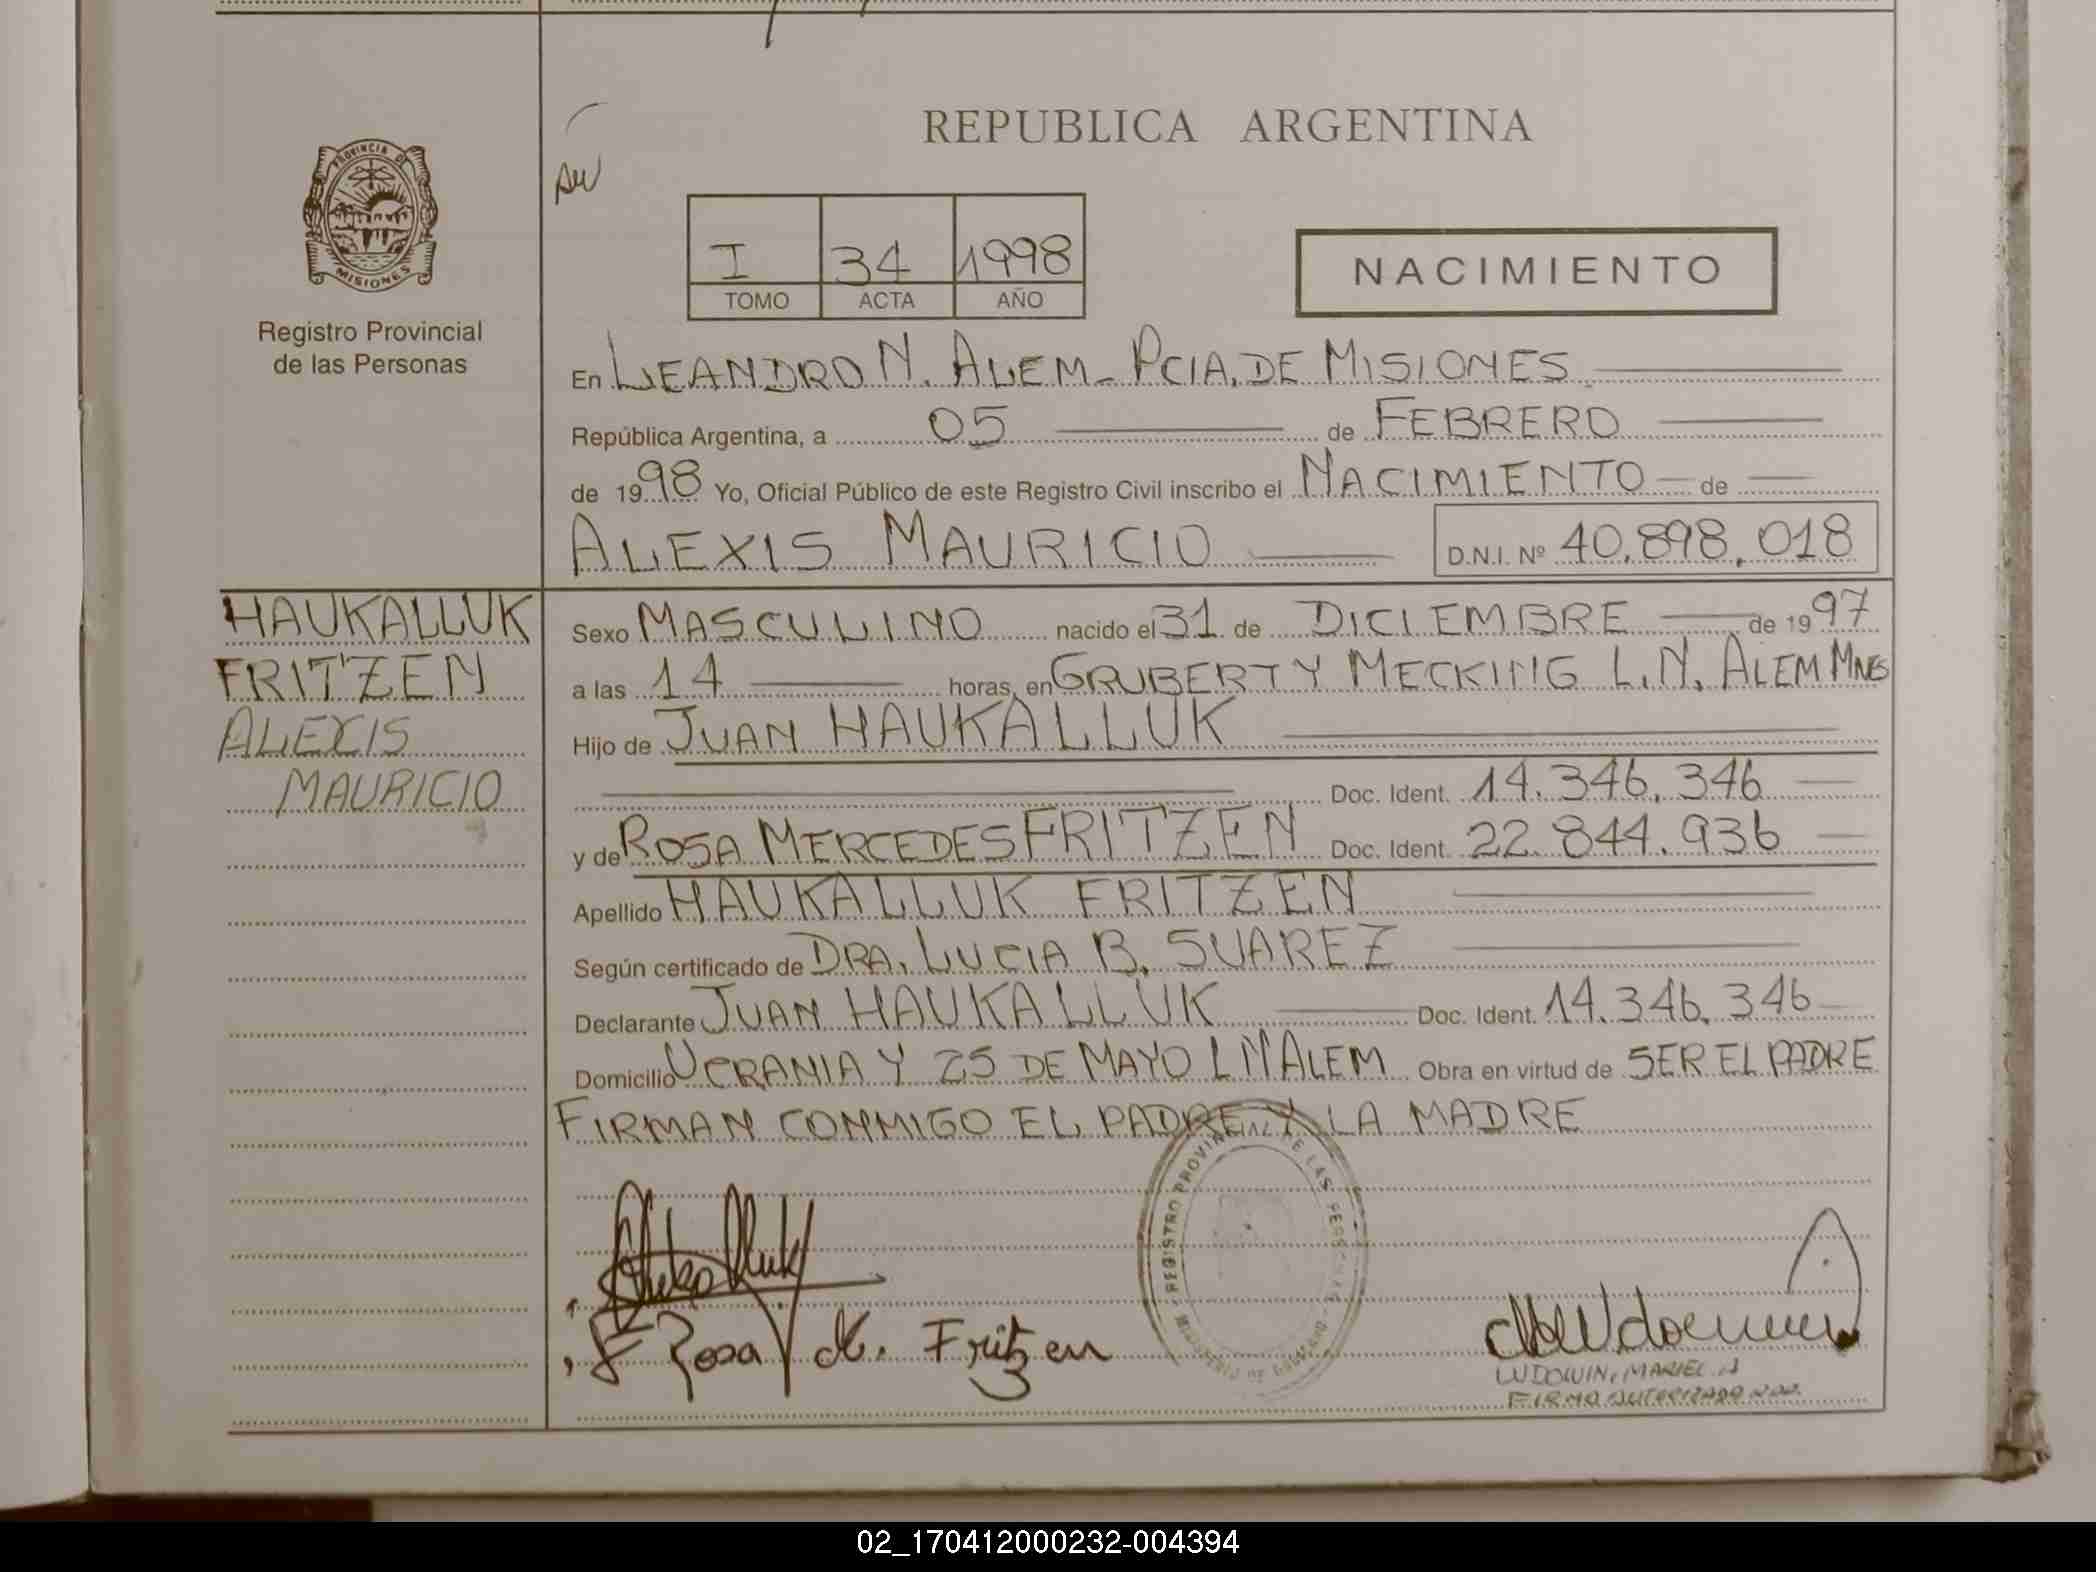 PROVINCIA DE
MISIONES
Registro Provincial
de las Personas
REPUBLICA ARGENTINA
I 34 1998
TOMO ACTA AÑO
NACIMIENTO
En LEANDRO N. ALEM - PCIA. DE MISIONES
República Argentina, a 05 de FEBRERO
de 1998 Yo, Oficial Público de este Registro Civil inscribo el NACIMIENTO de
ALEXIS MAURICIO D.N.I. Nº 40.898.018
HAUKALLUK
FRITZEN
ALEXIS
MAURICIO
Sexo MASCULINO nacido el 31 de DICIEMBRE de 1997
a las 14 horas, en GRUBERT Y MECKING L.N. ALEM MNES
Hijo de JUAN HAUKALLUK
Doc. Ident. 14.346.346
y de ROSA MERCEDES FRITZEN Doc. Ident. 22.844.936
Apellido HAUKALLUK FRITZEN
Según certificado de DRA. LUCIA B. SUAREZ
Declarante JUAN HAUKALLUK Doc. Ident. 14.346.346
Domicilio UCRANIA Y 25 DE MAYO L N ALEM Obra en virtud de SER EL PADRE
FIRMAN CONMIGO EL PADRE Y LA MADRE
REGISTRO PROVINCIAL DE LAS PERSONAS
MINISTERIO DE GOBIERNO
Rosa M. Fritzen
LUDOWIN, MARIEL A
FIRMA AUTORIZADA
02_170412000232-004394